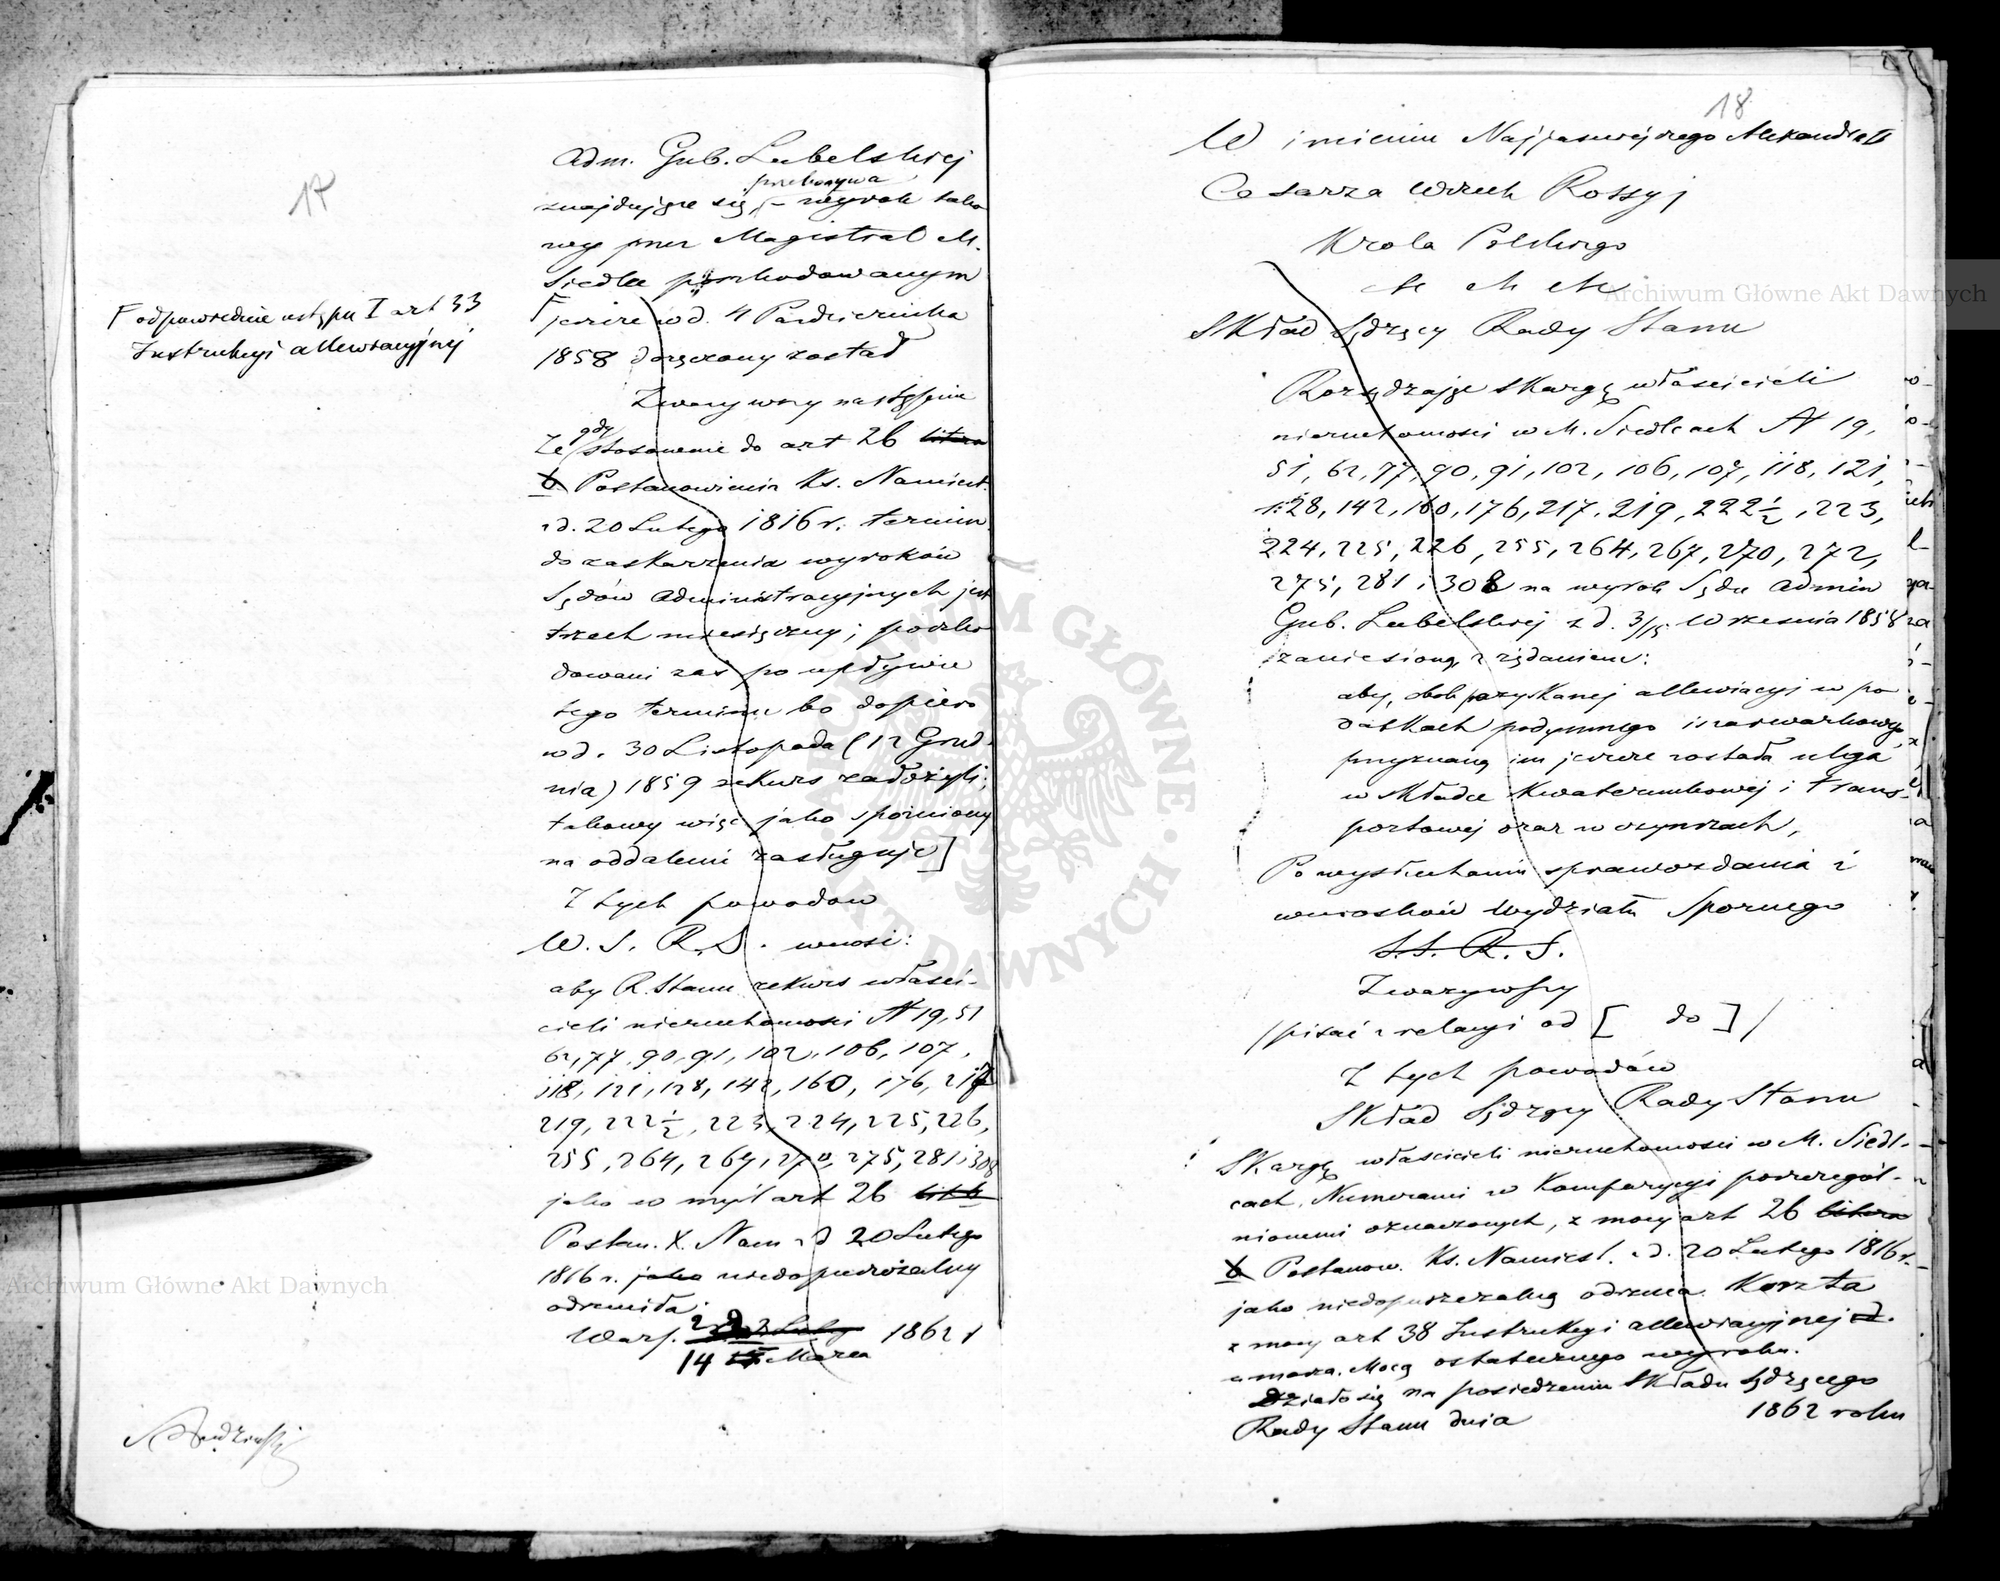 17
F odpowiednie ustępu I art 33
Instrukcyi allewiacyjnej
Adm. Gub. Lubelskiej
przekonywa
znajdujące się, wyrok tako
wy przez Magistrat M.
Siedlce poszkodowanym
F jeszcze w d. 4 Października
1858 doręczony został
Zważywszy następnie
że gdy stosownie do art 26 litera
b Postanowienia Ks. Namiest.
z d. 20 Lutego 1816 r. termin
do zaskarżenia wyroków
Sądów Administracyjnych jest
trzech miesięczny; poszko
dowani zaś po upływie
tego terminu bo dopiero
w d. 30 Listopada (12 Grud
nia) 1859 rekurs założyli;
takowy więc jako spóźniony
na oddalenie zasługuje]
Z tych powodow
W. S. R. S. wnosi:
aby R. Stanu rekurs właści-
cieli nieruchomości N 19, 51
62, 77, 90, 91, 102, 106, 107,
118, 121, 128, 142, 160, 176, 217
219, 222 1/2, 223, 224, 225, 226,
255, 264, 267, 270, 275, 281 i 308
jako w myśl art 26 lit b
Postan. X. Nam z d 20 Lutego
1816 r. jako niedopuszczalny
odrzuciła.
Wars. 2 Lutego 1862 r
14 Marca
18
W imieniu Najjaśniejszego Alexandra II
Cesarza Wszech Rossyj
Krola Polskiego
&c &c &c
Skład Sądzący Rady Stanu
Rozsądzając skargę właścicieli
nieruchomości w M. Siedlcach N 19,
51, 62, 77, 90, 91, 102, 106, 107, 118, 121,
128, 142, 160, 176, 217, 219, 222 1/2, 223,
224, 225, 226, 255, 264, 267, 270, 272,
275, 281 i 308 na wyrok Sądu Admin
Gub. Lubelskiej z d. 3/15 Września 1858
zaniesioną z żądaniem:
aby, obok pozyskanej allewiacyi w po
datkach podymnego i szarwarkowego,
przyznaną im jeszcze została ulga
w składce kwaterunkowej i trans-
portowej oraz w czynszach,
Po wysłuchaniu sprawozdania i
wniosków Wydziału Spornego
S. S. R. S.
Zważywszy
/pisać z relacyi od [ do ] /
Z tych powodów
Skład Sądzący Rady Stanu
Skargę właścicieli nieruchomości w M. Siedl-
cach, Numerami w Komparycyi poszczegól-
nionemi oznaczonych, z mocy art 26 litera
b Postanow. Ks. Namiest. z d. 20 Lutego 1816 r.
jako niedopuszczalną odrzuca. Koszta
z mocy art 38 Instrukcyi allewiacyjnej
umarza. Mocą ostatecznego wyroku.
Działo się na posiedzeniu Składu Sądzącego
Rady Stanu dnia 1862 roku
Archiwum Główne Akt Dawnych
Archiwum Główne Akt Dawnych
ARCHIWUM GŁÓWNE AKT DAWNYCH